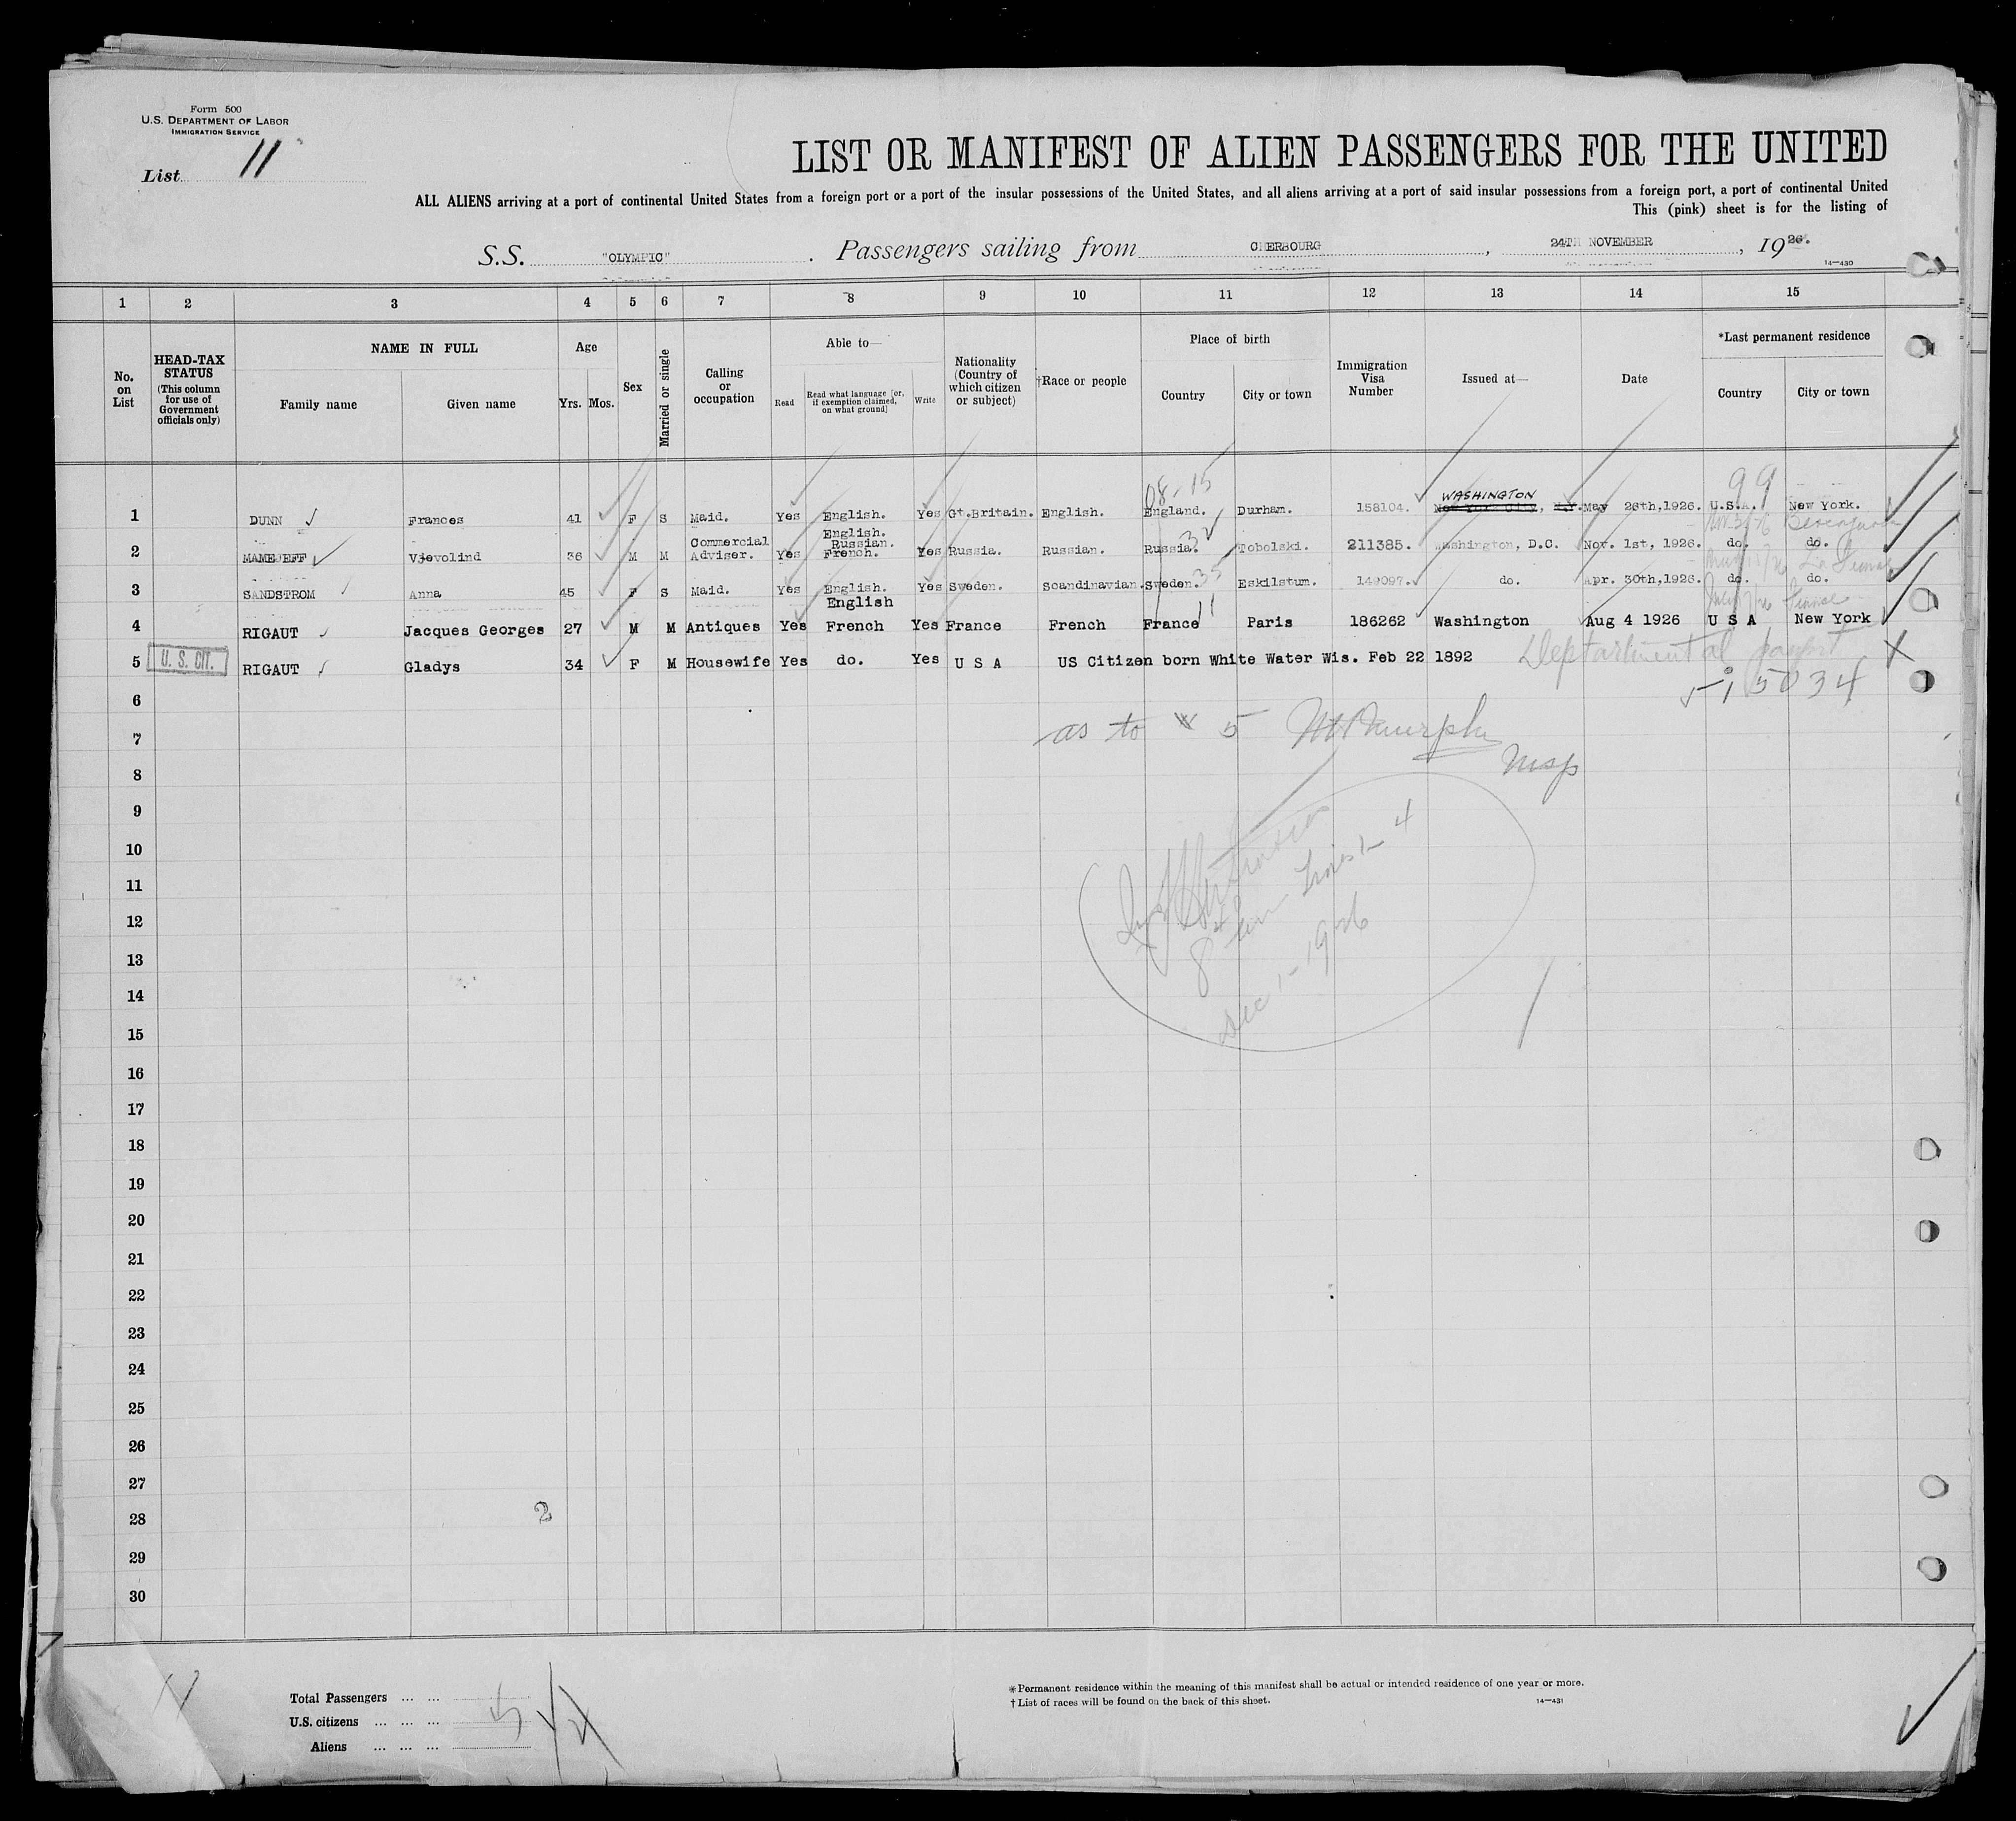 Form 500
U.S. DEPARTMENT OF LABOR
IMMIGRATION SERVICE
List 11
LIST OR MANIFEST OF ALIEN PASSENGERS FOR THE UNITED
ALL ALIENS arriving at a port of continental United States from a foreign port or a port of the insular possessions of the United States, and all aliens arriving at a port of said insular possessions from a foreign port, a port of continental United
This (pink) sheet is for the listing of
S.S. "OLYMPIC" . Passengers sailing from CHERBOURG , 24TH NOVEMBER , 1926.
14—430
1 2 3 4 5 6 7 8 9 10 11 12 13 14 15
No. on List
HEAD-TAX STATUS (This column for use of Government officials only)
NAME IN FULL
Family name Given name
Age
Yrs. Mos.
Sex
Married or single
Calling or occupation
Able to—
Read Read what language [or, if exemption claimed, on what ground] Write
Nationality (Country of which citizen or subject)
†Race or people
Place of birth
Country City or town
Immigration Visa Number
Issued at—
Date
*Last permanent residence
Country City or town
08-15 WASHINGTON 99
1 DUNN Frances 41 F S Maid. Yes English. Yes Gt.Britain. English. England. Durham. 158104. New York City, N.Y. May 26th,1926. U.S.A. New York.
English.
Commercial Russian. 32
2 MAMEJEFF Vsevolind 36 M M Adviser. Yes French. Yes Russia. Russian. Russia. Tobolski. 211385. Washington, D.C. Nov. 1st, 1926. do. do.
35
3 SANDSTROM Anna 45 F S Maid. Yes English. Yes Sweden. Scandinavian. Sweden. Eskilstum. 149097. do. Apr. 30th,1926. do. do.
English 11
4 RIGAUT Jacques Georges 27 M M Antiques Yes French Yes France French France Paris 186262 Washington Aug 4 1926 U S A New York
5 U. S. CIT. RIGAUT Gladys 34 F M Housewife Yes do. Yes U S A US Citizen born White Water Wis. Feb 22 1892 Deptartmental
6 515034
7 as to # 5
8
9
10
11
12
13 Dec 1- 1926
14
15
16
17
18
19
20
21
22
23
24
25
26
27
28 2
29
30
Total Passengers ... ... 5
U.S. citizens ... ... ...
Aliens ... ... ...
*Permanent residence within the meaning of this manifest shall be actual or intended residence of one year or more.
†List of races will be found on the back of this sheet. 14—431